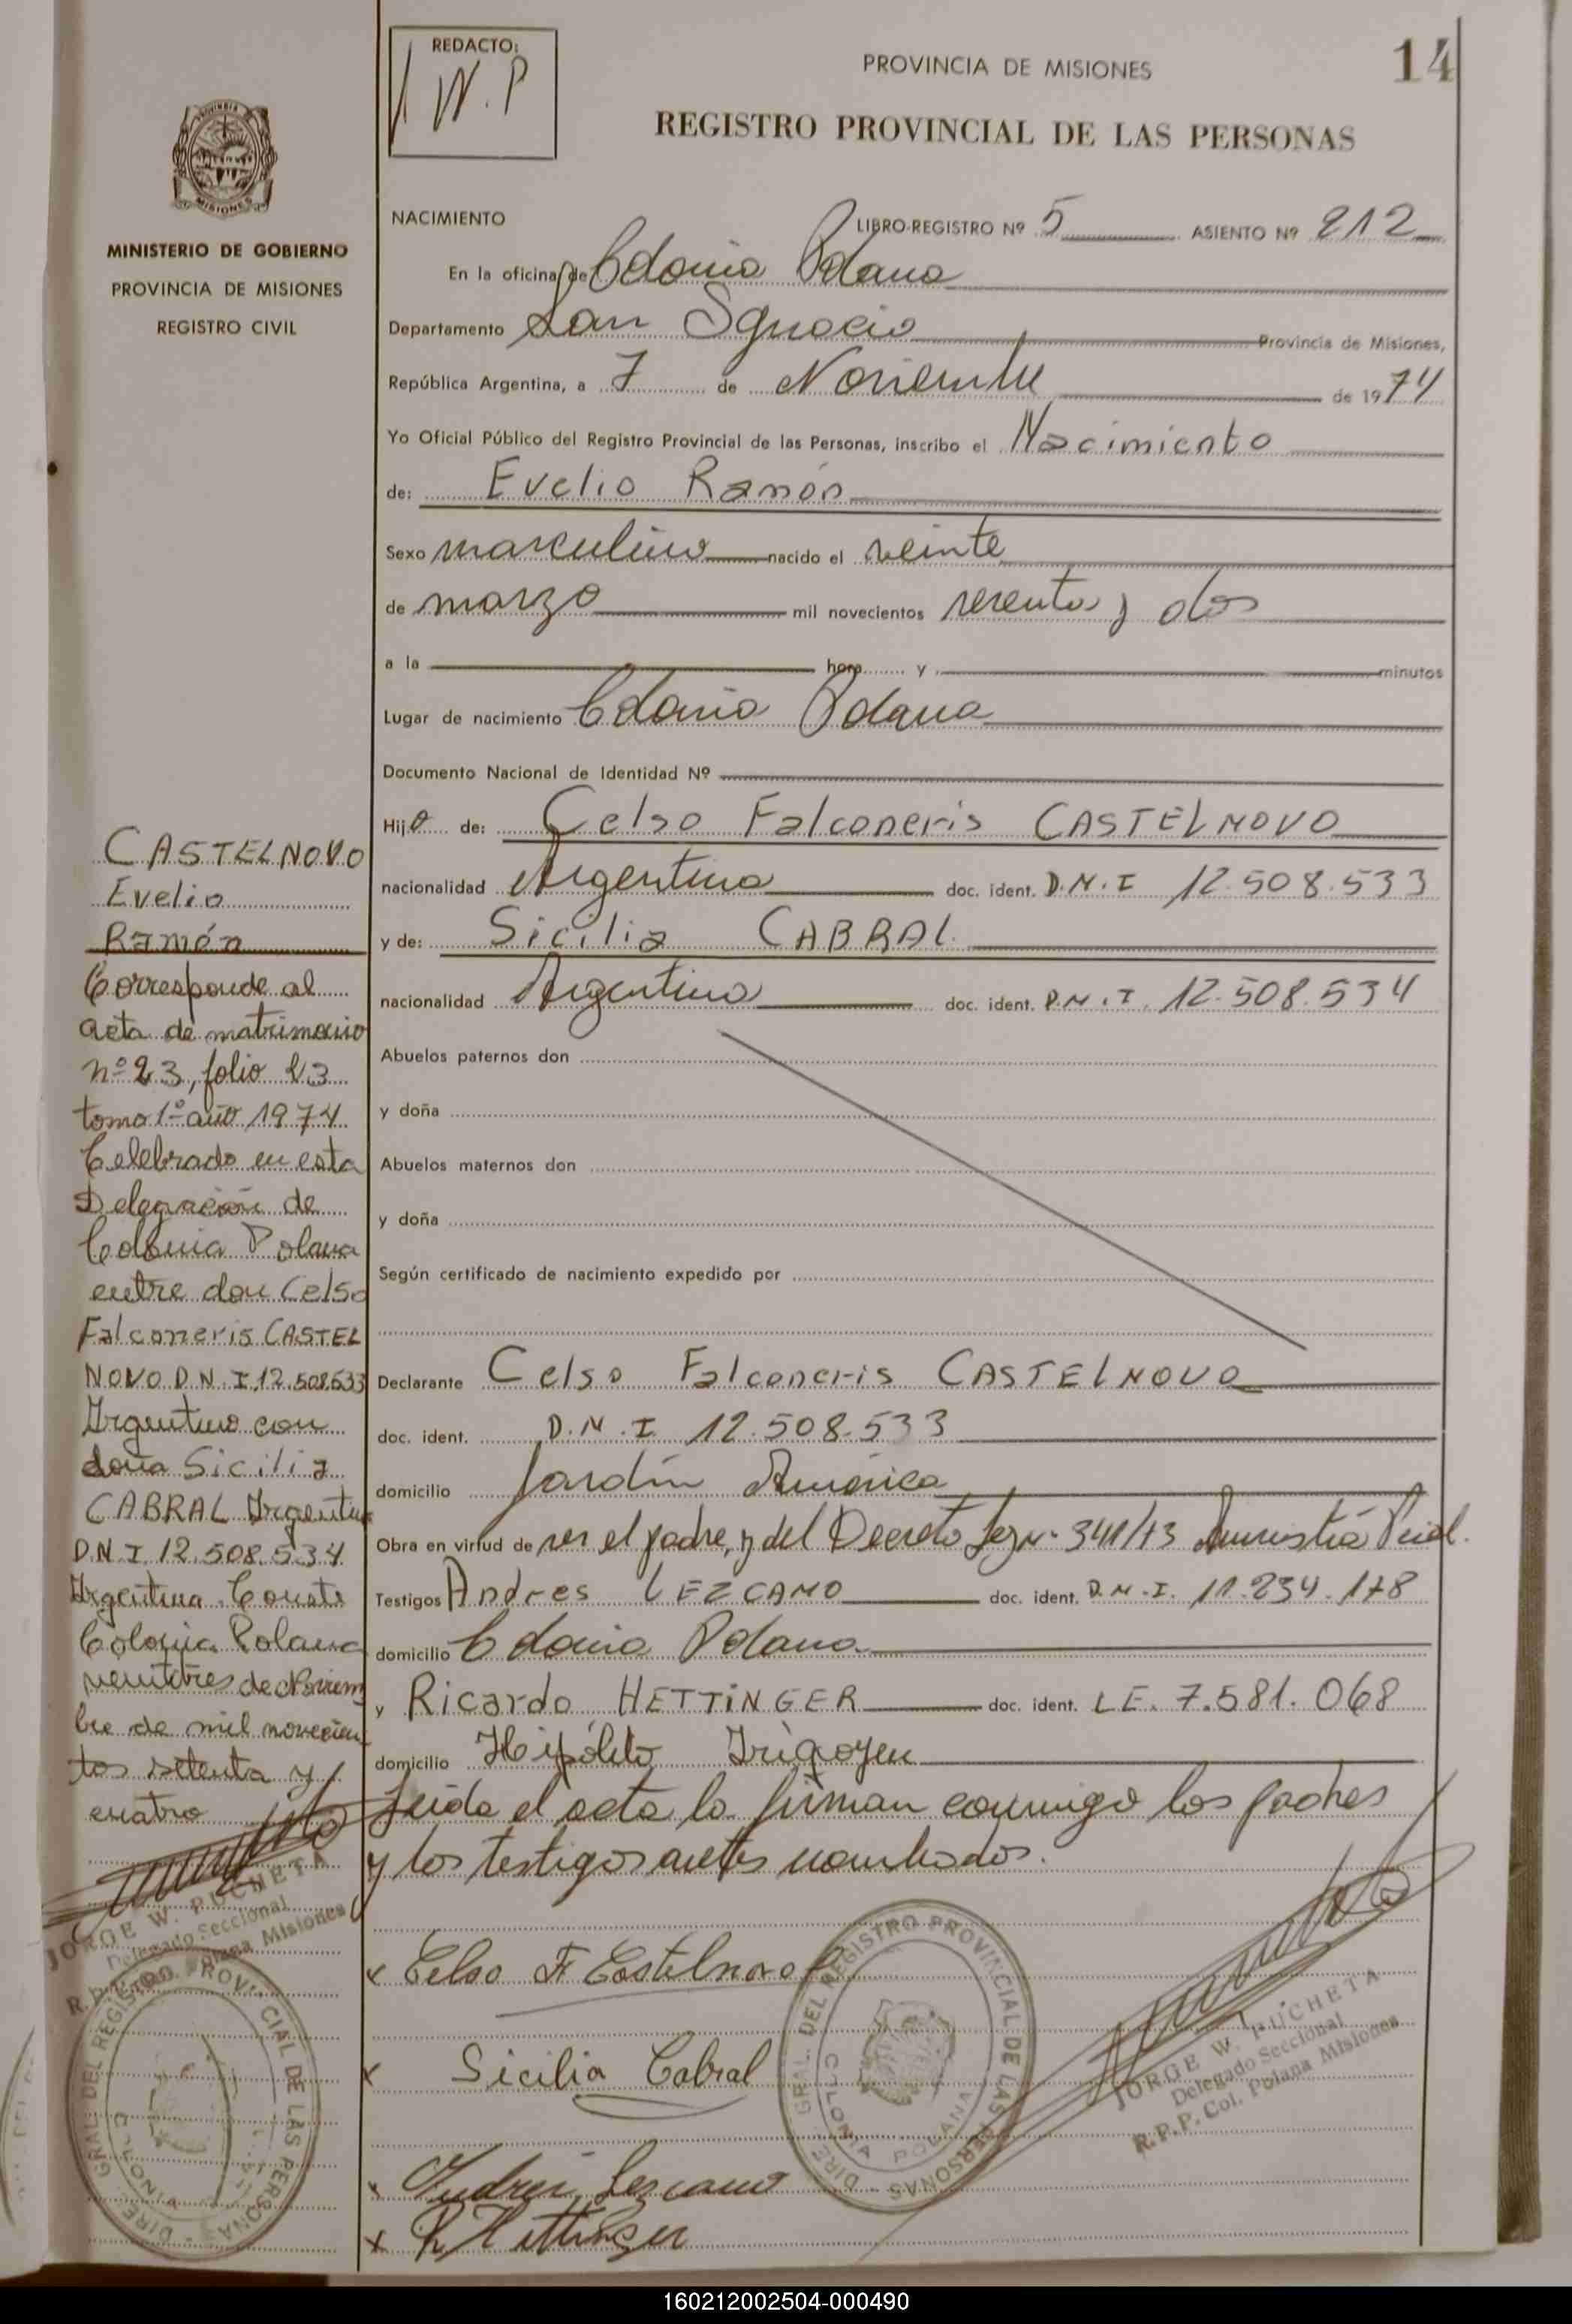 REDACTO:
W.P
PROVINCIA DE MISIONES
14
REGISTRO PROVINCIAL DE LAS PERSONAS
PROVINCIA
MISIONES
MINISTERIO DE GOBIERNO
PROVINCIA DE MISIONES
REGISTRO CIVIL
NACIMIENTO
LIBRO-REGISTRO Nº 5 ASIENTO Nº 212
En la oficina de Colonia Polana
Departamento San Ignacio Provincia de Misiones,
República Argentina, a 7 de Noviembre de 1974
Yo Oficial Público del Registro Provincial de las Personas, inscribo el Nacimiento
de: Evelio Ramón
Sexo masculino nacido el veinte
de marzo mil novecientos setenta y dos
a la hora y minutos
Lugar de nacimiento Colonia Polana
Documento Nacional de Identidad Nº
Hijo de: Celso Falconeris CASTELNOVO
nacionalidad Argentina doc. ident. D.N.I 12.508.533
y de: Sicilia CABRAL
nacionalidad Argentina doc. ident. D.N.I. 12.508.534
Abuelos paternos don
y doña
Abuelos maternos don
y doña
Según certificado de nacimiento expedido por
Declarante Celso Falconeris CASTELNOVO
doc. ident. D.N.I 12.508.533
domicilio Jardín América
Obra en virtud de ser el padre, y del Decreto Ley Nº 341/73 Amnistía
Testigos Andres LEZCANO doc. ident. D.N.I. 11.234.178
domicilio Colonia Polana
y Ricardo HETTINGER doc. ident. LE. 7.581.068
domicilio Hipólito Irigoyen
Leída el acta la firman conmigo los padres
y los testigos antes nombrados.
Celso F Castelnovo
Sicilia Cabral
Andres Lezcano
R Hettinger
DIRE. GRAL. DEL REGISTRO PROVINCIAL DE LAS PERSONAS
COLONIA POLANA
JORGE W. PUCHETA
Delegado Seccional
R.P.P. Col. Polana Misiones
CASTELNOVO
Evelio
Ramón
Corresponde al
acta de matrimonio
nº 23, folio 23
tomo 1º año 1974
Celebrado en esta
Delegación de
Colonia Polana
entre don Celso
Falconeris CASTEL
NOVO D.N.I.12.508.533
Argentino con
doña Sicilia
CABRAL Argentina
D.N.I 12.508.534
Argentina. Conste
Colonia Polana
veintitres de Noviem
bre de mil novecien
tos setenta y
cuatro
JORGE W. PUCHETA
Delegado Seccional
R.P.P. Col. Polana Misiones
DIRE. GRAL. DEL REGISTRO PROVINCIAL DE LAS PERSONAS
COLONIA
160212002504-000490